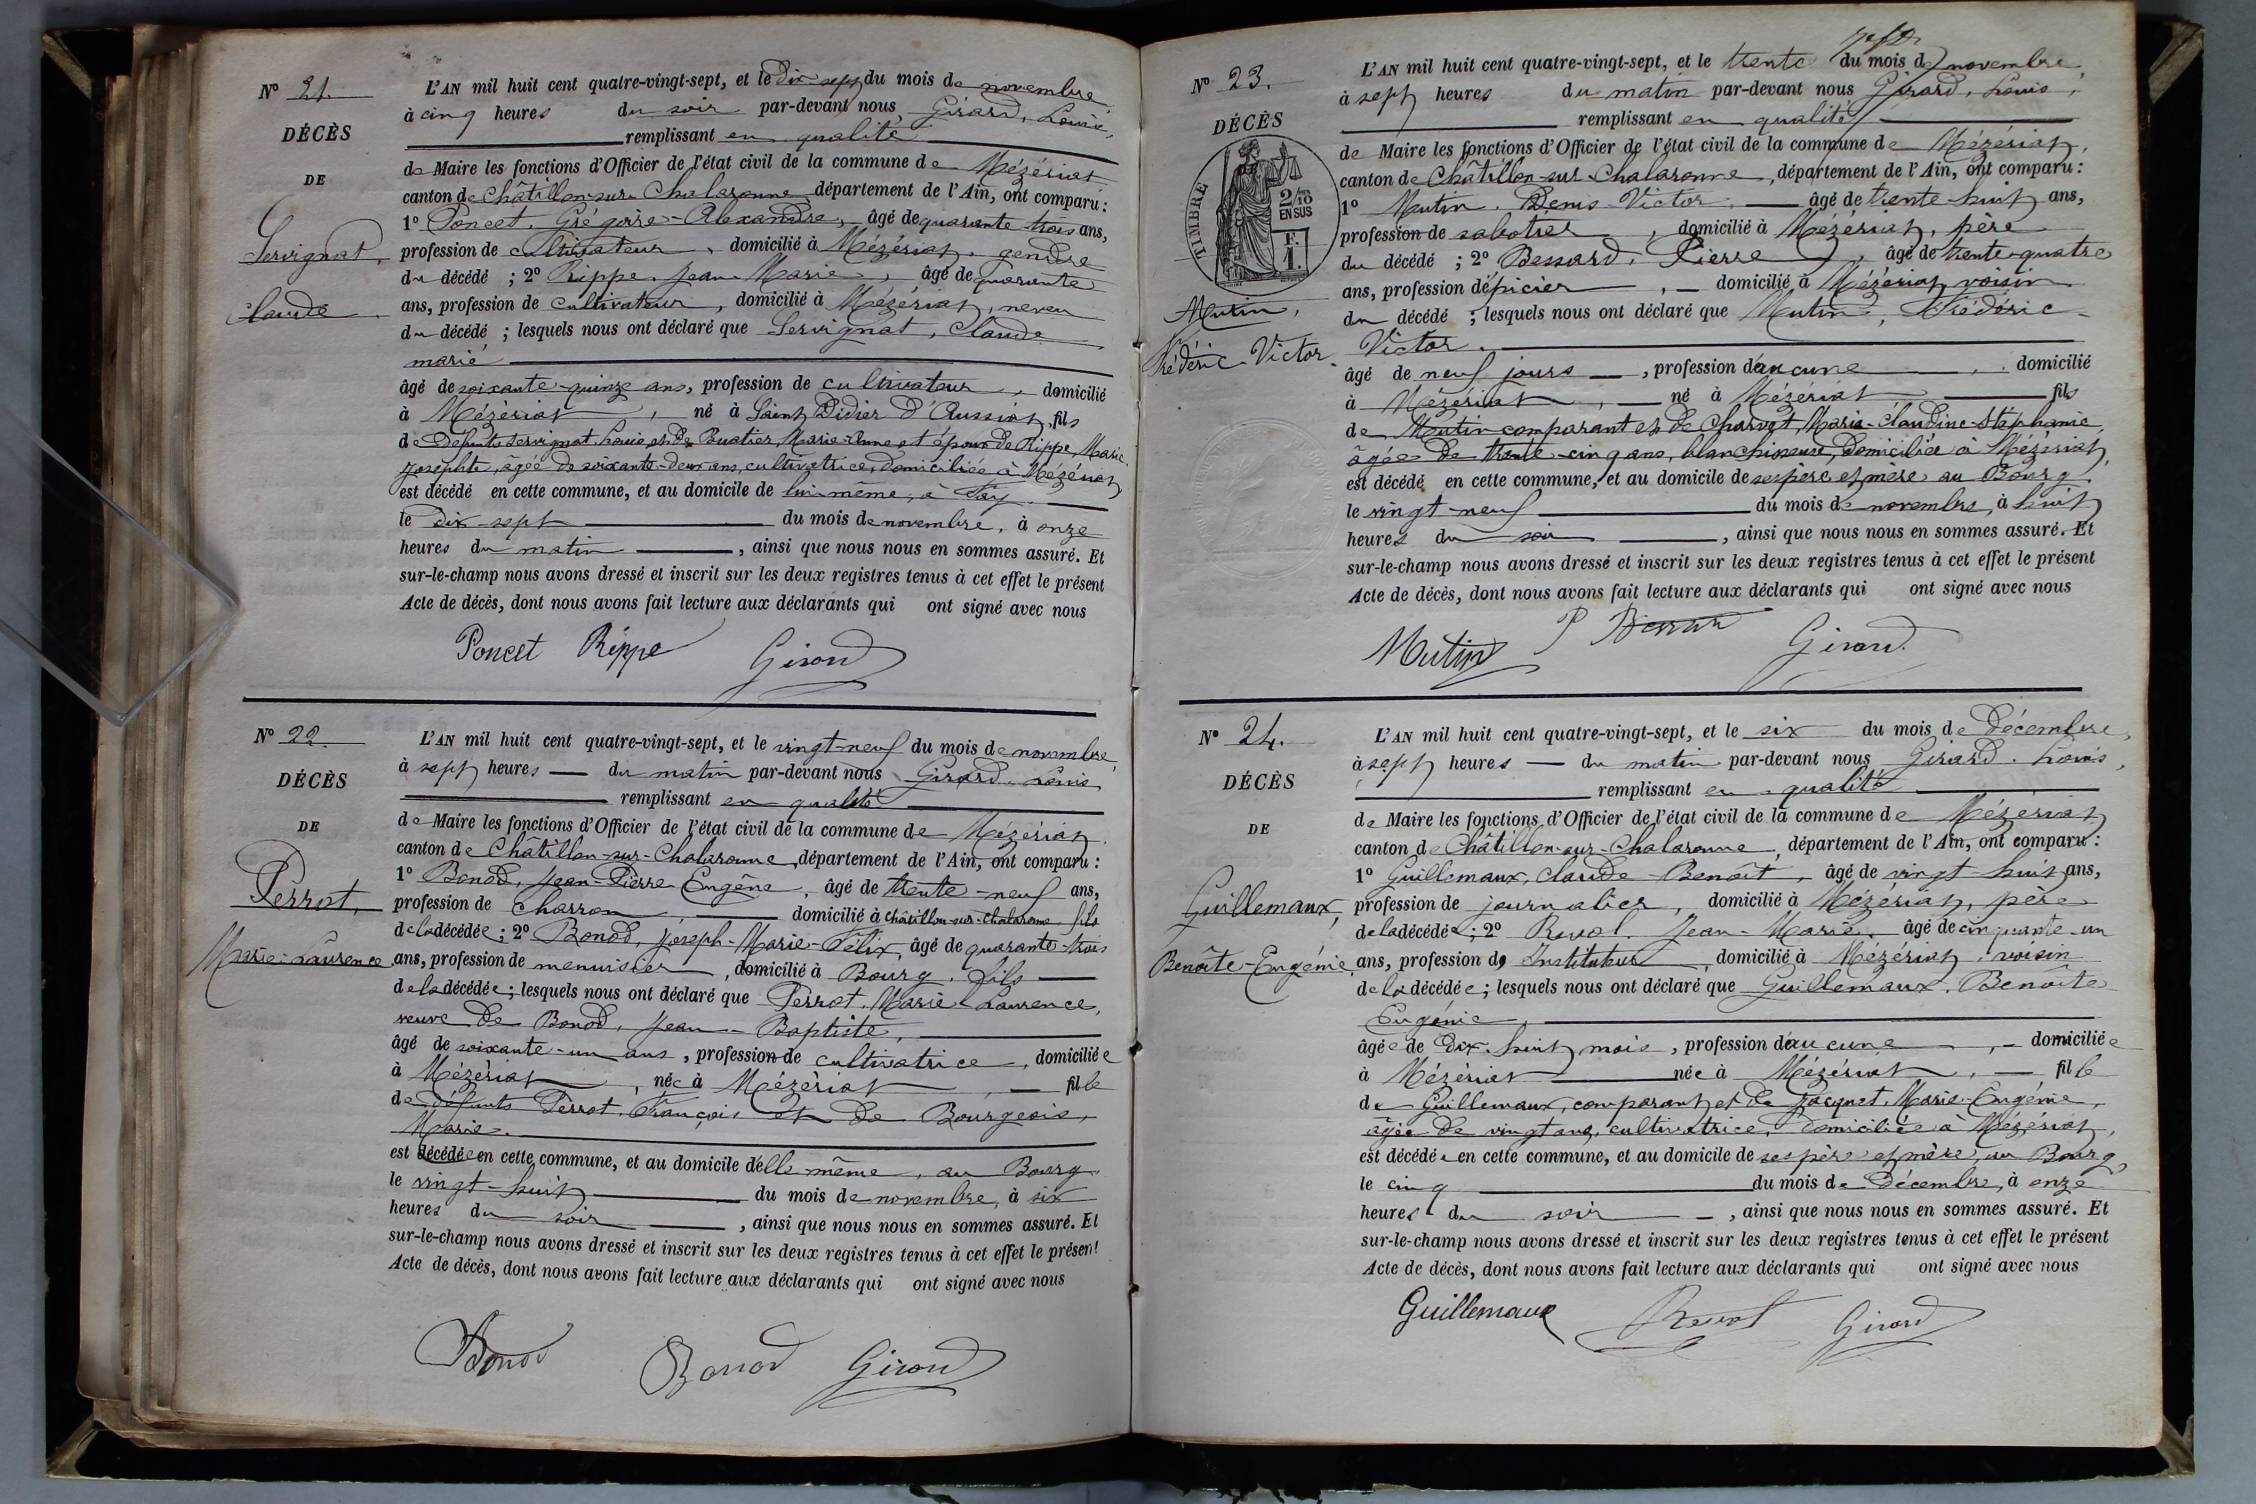 Nº 21.
DÉCÈS
DE
Servignat,
Claude.
L'AN mil huit cent quatre-vingt-sept, et le dix sept du mois de novembre,
à cinq heures du soir par-devant nous Girard, Louis,
remplissant en qualité
de Maire les fonctions d'Officier de l'état civil de la commune de Mézériat,
canton de Châtillon-sur-Chalaronne, département de l'Ain, ont comparu :
1º Poncet, Grégoire-Alexandre, âgé de quarante trois ans,
profession de cultivateur, domicilié à Mézériat, gendre
du décédé ; 2º Rippe, Jean-Marie, âgé de quarante
ans, profession de cultivateur, domicilié à Mézériat, neveu
du décédé ; lesquels nous ont déclaré que Servignat, Claude
marié
âgé de soixante-quinze ans, profession de cultivateur, domicilié
à Mézériat, né à Saint Didier d'Aussiat, fils
de défunts Servignat, Louis, et de Buatier, Marie-Anne et époux de Rippe, Marie
Josephte, âgée de soixante-deux ans, cultivatrice, domiciliée à Mézériat,
est décédé en cette commune, et au domicile de lui-même, à Fay
le dix-sept du mois de novembre, à onze
heures du matin, ainsi que nous nous en sommes assuré. Et
sur-le-champ nous avons dressé et inscrit sur les deux registres tenus à cet effet le présent
Acte de décès, dont nous avons fait lecture aux déclarants qui ont signé avec nous
Poncet Rippe Girard
Nº 22.
DÉCÈS
DE
Perrot,
Marie-Laurence
L'AN mil huit cent quatre-vingt-sept, et le vingt-neuf du mois de novembre,
à sept heures du matin par-devant nous Girard Louis
remplissant en qualité
de Maire les fonctions d'Officier de l'état civil de la commune de Mézériat,
canton de Châtillon-sur-Chalaronne, département de l'Ain, ont comparu :
1º Bonod, Jean-Pierre Eugène, âgé de trente-neuf ans,
profession de charron, domicilié à Châtillon-sur-Chalaronne, fils
de la décédée ; 2º Bonod, Joseph-Marie-Félix, âgé de quarante-trois
ans, profession de menuisier, domicilié à Bourg, fils
de la décédée ; lesquels nous ont déclaré que Perrot, Marie-Laurence,
veuve de Bonod, Jean-Baptiste,
âgé de soixante-un ans, profession de cultivatrice, domiciliée
à Mézériat, née à Mézériat, fille
de défunts Perrot, François et de Bourgeois,
Marie.
est décédée en cette commune, et au domicile d'elle même, au Bourg
le vingt-huit du mois de novembre, à six
heures du soir, ainsi que nous nous en sommes assuré. Et
sur-le-champ nous avons dressé et inscrit sur les deux registres tenus à cet effet le présent
Acte de décès, dont nous avons fait lecture aux déclarants qui ont signé avec nous
Bonod Bonod Girard
Nº 23.
DÉCÈS
DE
TIMBRE
2/10
EN SUS
F.
1.
Mutin,
Frédéric-Victor.
L'AN mil huit cent quatre-vingt-sept, et le trente du mois de novembre
à sept heures du matin par-devant nous Girard, Louis,
remplissant en qualité
de Maire les fonctions d'Officier de l'état civil de la commune de Mézériat,
canton de Châtillon-sur-Chalaronne, département de l'Ain, ont comparu :
1º Mutin, Denis-Victor, âgé de trente-huit ans,
profession de sabotier, domicilié à Mézériat, père
du décédé ; 2º Bessard, Pierre, âgé de trente-quatre
ans, profession d'épicier, domicilié à Mézériat, voisin
du décédé ; lesquels nous ont déclaré que Mutin, Frédéric-
Victor.
âgé de neuf jours, profession d'aucune, domicilié
à Mézériat, né à Mézériat fils
de Mutin comparant et de Charvet, Marie-Claudine-Stéphanie,
âgée de trente-cinq ans, blanchisseuse, domiciliée à Mézériat,
est décédé en cette commune, et au domicile de ses père et mère au Bourg
le vingt-neuf du mois de novembre, à huit
heures du soir, ainsi que nous nous en sommes assuré. Et
sur-le-champ nous avons dressé et inscrit sur les deux registres tenus à cet effet le présent
Acte de décès, dont nous avons fait lecture aux déclarants qui ont signé avec nous
Mutin P Bessard Girard
Nº 24.
DÉCÈS
DE
Guillemaux,
Benoîte-Eugénie.
L'AN mil huit cent quatre-vingt-sept, et le six du mois de décembre,
à sept heures du matin par-devant nous Girard, Louis,
remplissant en qualité
de Maire les fonctions d'Officier de l'état civil de la commune de Mézériat
canton de Châtillon-sur-Chalaronne, département de l'Ain, ont comparu :
1º Guillemaux, Claude-Benoît, âgé de vingt-huit ans,
profession de journalier, domicilié à Mézériat, père
de la décédée ; 2º Revol, Jean-Marie, âgé de cinquante-un
ans, profession d' Instituteur, domicilié à Mézériat, voisin
de la décédée ; lesquels nous ont déclaré que Guillemaux, Benoîte
Eugénie,
âgée de dix-huit mois, profession d'aucune, domiciliée
à Mézériat née à Mézériat, fille
de Guillemaux, comparant, et de Jacquet, Marie-Eugénie,
âgée de vingt ans, cultivatrice, domiciliée à Mézériat,
est décédée en cette commune, et au domicile de ses père et mère, au Bourg,
le cinq du mois de décembre, à onze
heures du soir, ainsi que nous nous en sommes assuré. Et
sur-le-champ nous avons dressé et inscrit sur les deux registres tenus à cet effet le présent
Acte de décès, dont nous avons fait lecture aux déclarants qui ont signé avec nous
Guillemaux Revol Girard